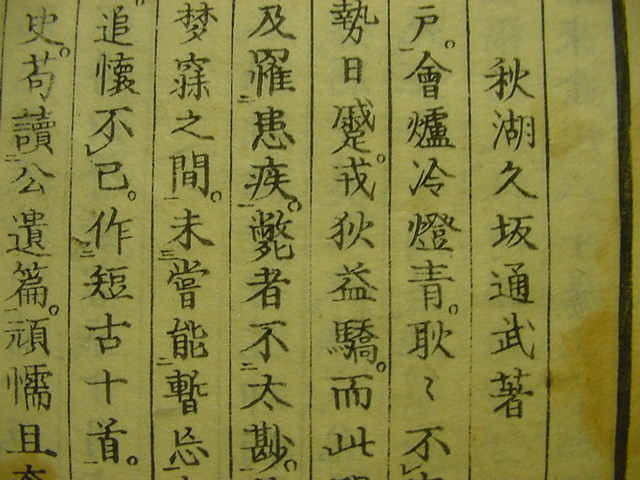 秋湖久坂通武著
戸。會爐冷燈青。耿〻不
勢日蹙。戎狄益驕。而此
及罹二患疾。斃者不二太尠。
梦寐之間。未三嘗能二暫忘
追懷不已。作三短古十首。
史。苟讀二公遺篇。頑懦且